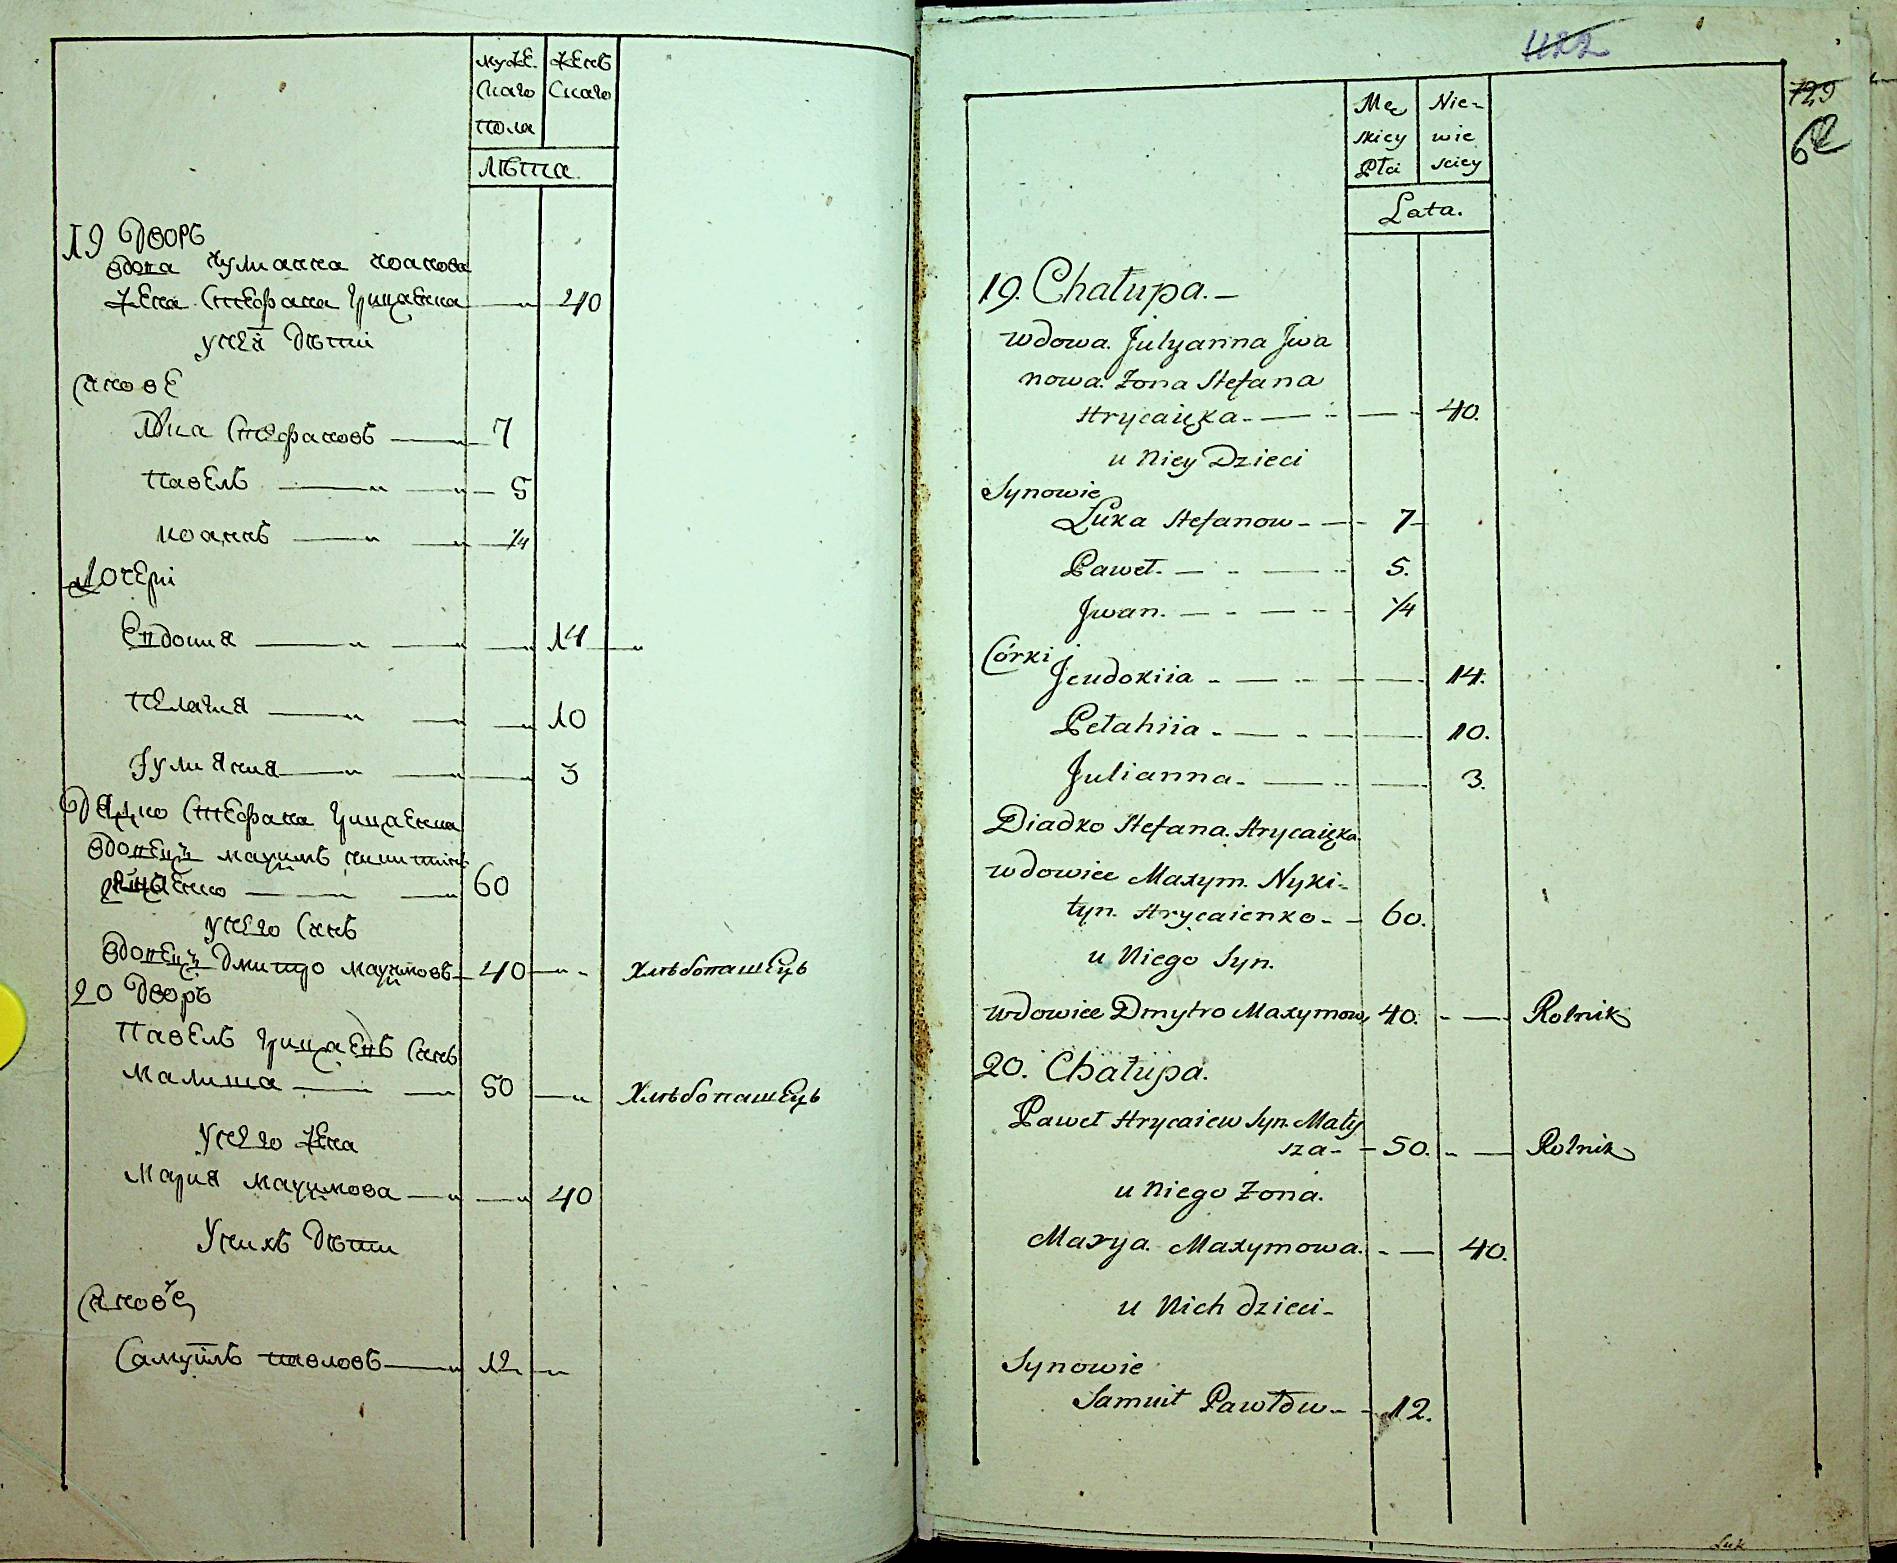 муже. женъ
скаго скаго
пола
лѣта
19 дворъ
вдова иулианна иоанова
жена Стефана Грицаенка 40
у неѧ дѣти
сынове
Лука Стефановъ 7
павелъ 5
иоаннъ 1/4
дочери
Евдокия 14
пелагия 10
иулияния 3
дядко Стефана Грицаенка
вдовецъ маѯимъ никитинъ
грицаенко 60
у него сынъ
вдовецъ дмитро маѯимовъ 40 хлѣбопашецъ
20 дворъ
павелъ Грицаевъ сынъ
малиша 50 хлѣбопашецъ
у него жена
Мария маѯимова 40
у нихъ дѣти
сынове
Самуилъ павловъ 12
422
729
62
Mę Nie-
skiey wie
Płci sciey
Lata.
19. Chałupa.
wdowa. Julyanna Jwa
nowa. Żona Stefana
Hrycaięka 40.
u Niey Dzieci
Synowie
Łuka Stefanow 7
Paweł. 5.
Jwan. 1/4
Córki
Jeudokiia 14.
Pełahiia 10.
Julianna 3.
Diadko Stefana. Hrycaięka
wdowiec Maxym. Nyki-
tyn. Hrycaienko 60.
u Niego Syn.
wdowiec Dmytro Maxymow, 40. Rolnik
20. Chałupa.
Paweł Hrycaiew Syn. Mały
sza 50. Rolnik
u Niego Żona.
Marya. Maxymowa. 40.
u Nich dzieci
Synowie
Samuił Pawłów 12.
Łuk